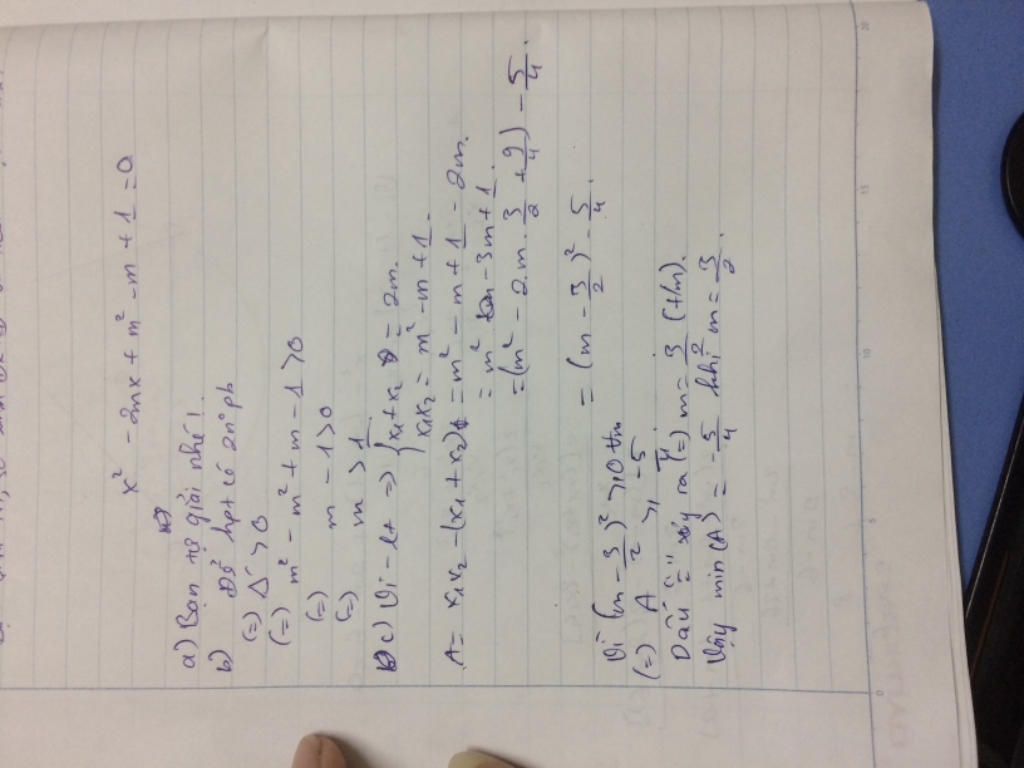 x² - 2mx + m² - m + 1 = 0
a) Bạn tự giải nhé!
b) Để hpt có 2n⁰ pb
(=) Δ' > 0
(=) m² - m² + m - 1 > 0
(=) m - 1 > 0
(=) m > 1
c) Vi-ét => { x₁ + x₂ = 2m.
x₁x₂ = m² - m + 1.
A = x₁x₂ - (x₁ + x₂) = m² - m + 1 - 2m.
= m² - 3m + 1.
= (m² - 2m · 3/2 + 9/4) - 5/4.
= (m - 3/2)² - 5/4.
Vì (m - 3/2)² ≥ 0
(=) A ≥ -5/4
Dấu "=" xảy ra (=) m = 3/2 (t/m).
Vậy min (A) = -5/4 khi m = 3/2